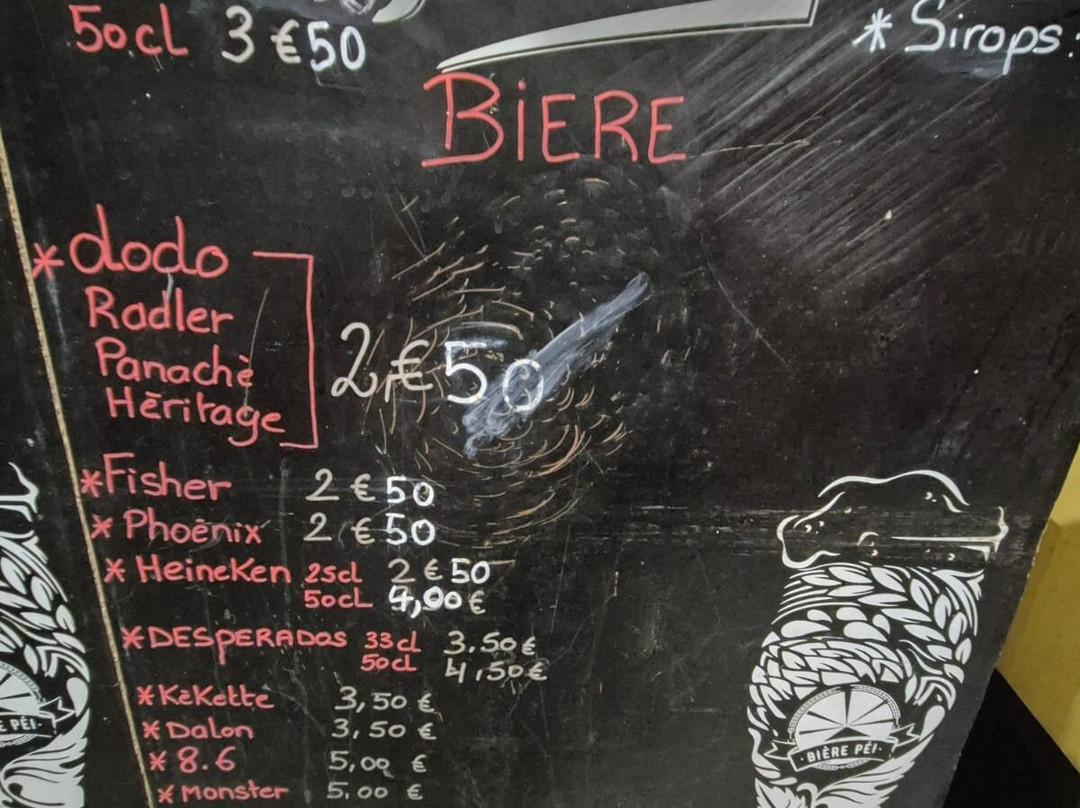 50cl 3 €50
* Sirops:
BiERE
* dodo
Radler
Panachè
Héritage
2,€50
* Fisher 2 €50
* Phoēnix 2 €50
* Heineken 25cl 2 €50
50cL 4,00€
* DESPERADOS 33cl 3.50€
50cl 4,50€
* KèKette 3,50 €
* Dalon 3,50 €
* 8.6 5,00 €
* Monster 5.00 €
BIÈRE PÉI
E PÉI